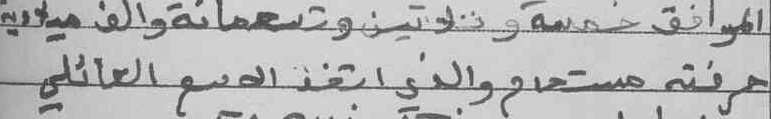 الموافق خمسة وثلاثين وتسعمائة والف ميلادية
حرفته مستخدم والذي اتخذ الاسم العائلي